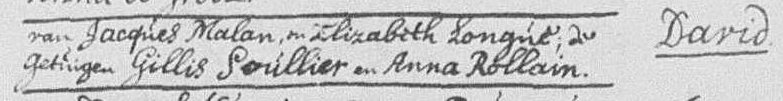 van Jacques Malan, en Elizabeth Longué; de
Getuigen Gillis Soullier en Anna Rollain.
David